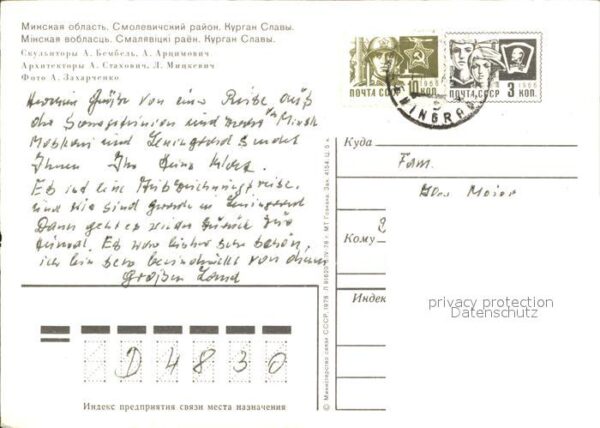 Минская область. Смолевичский район. Курган Славы.
Мінская вобласць. Смалявіцкі раён. Курган Славы.
Скульпторы А. Бембель, А. Арцимович
Архитекторы А. Стахович, Л. Мицкевич
Фото А. Захарченко
Herzliche Grüße von einer Reise aus
der Sowjetunion und in Minsk
Moskau und Leningrad sendet
Ihnen Ihr Heinz
Es ist eine Auszeichnungsreise
und wir sind gerade in Leningrad
Dann geht es wieder zurück zur
Heimat. Es war bisher sehr schön,
ich bin sehr beeindruckt von diesem
Großen Land
ПОЧТА СССР 10 КОП. 1966
ПОЧТА СССР 3 КОП. 1966
LENINGRAD
Куда
Fam.
Meier
Кому
Индекс
privacy protection
Datenschutz
D 4 8 3 0
Индекс предприятия связи места назначения
© Министерство связи СССР, 1978
МТ Гознака. Зак. 4154. Ц. 5 к.